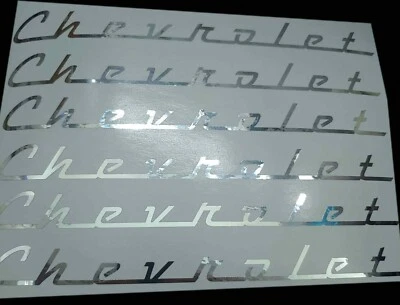 Chevrolet
Chevrolet
Chevrolet
Chevrolet
Chevrolet
Chevrolet